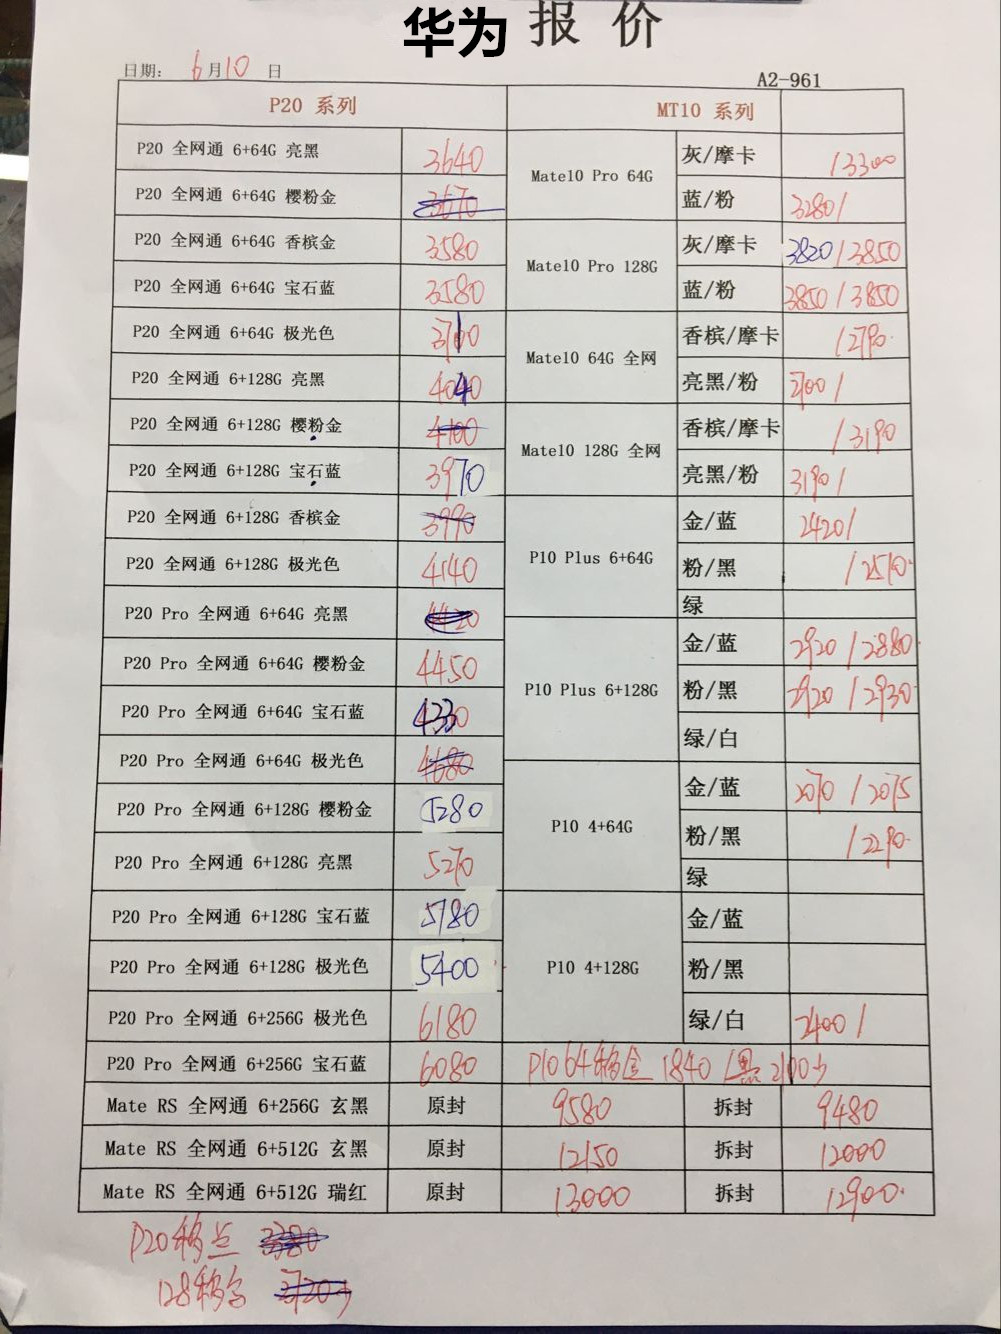 华为 报 价
日期: 6月10日
A2-961
P20 系列 MT10 系列
P20 全网通 6+64G 亮黑 3640
P20 全网通 6+64G 樱粉金 3670
P20 全网通 6+64G 香槟金 3580
P20 全网通 6+64G 宝石蓝 3580
P20 全网通 6+64G 极光色
P20 全网通 6+128G 亮黑 4040
P20 全网通 6+128G 樱粉金 4100
P20 全网通 6+128G 宝石蓝 3970
P20 全网通 6+128G 香槟金 3990
P20 全网通 6+128G 极光色 4140
P20 Pro 全网通 6+64G 亮黑
P20 Pro 全网通 6+64G 樱粉金 4450
P20 Pro 全网通 6+64G 宝石蓝 4330
P20 Pro 全网通 6+64G 极光色 4680
P20 Pro 全网通 6+128G 樱粉金 5280
P20 Pro 全网通 6+128G 亮黑 5270
P20 Pro 全网通 6+128G 宝石蓝 5180
P20 Pro 全网通 6+128G 极光色 5400
P20 Pro 全网通 6+256G 极光色 6180
P20 Pro 全网通 6+256G 宝石蓝 6080
Mate10 Pro 64G
灰/摩卡 /3300
蓝/粉 3280/
Mate10 Pro 128G
灰/摩卡 3820/3850
蓝/粉 3850/3850
Mate10 64G 全网
香槟/摩卡 /2790
亮黑/粉 2700/
Mate10 128G 全网
香槟/摩卡 /3190
亮黑/粉 3190/
P10 Plus 6+64G
金/蓝 2420/
粉/黑 /2510
绿
P10 Plus 6+128G
金/蓝 2920/2880
粉/黑 2920/2930
绿/白
P10 4+64G
金/蓝 2070/2075
粉/黑 /2290
绿
P10 4+128G
金/蓝
粉/黑
绿/白 2400/
P10 64移金 1840 /黑2100
Mate RS 全网通 6+256G 玄黑 原封 9580 拆封 9480
Mate RS 全网通 6+512G 玄黑 原封 12150 拆封 12000
Mate RS 全网通 6+512G 瑞红 原封 13000 拆封 12900
P20移 3380
128移